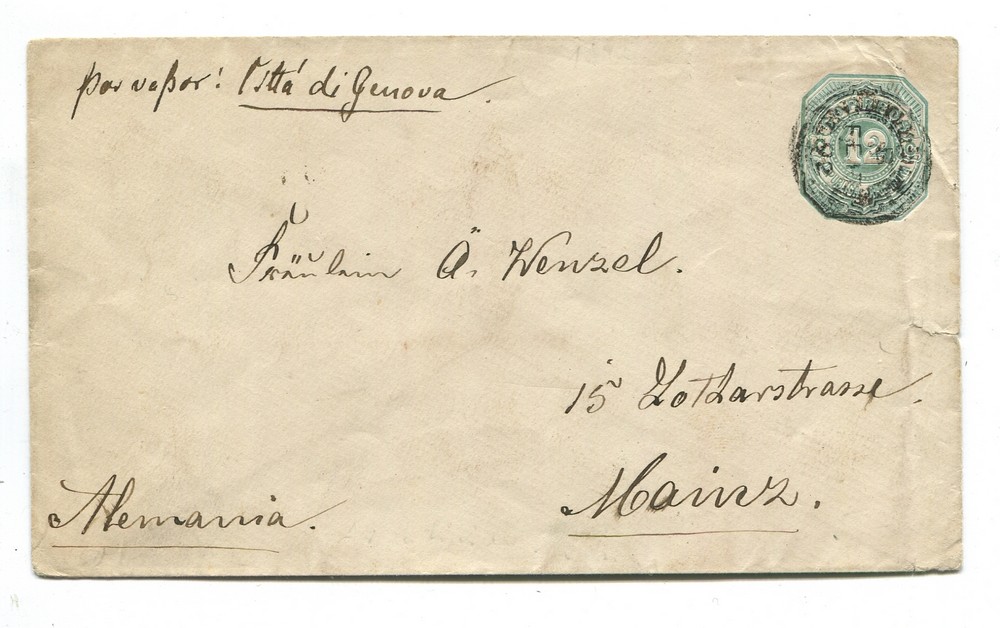 por vapor! Cittá di Genova.
12
Fräulein Ä. Wenzel.
15 Lotharstrasse.
Mainz.
Alemania.